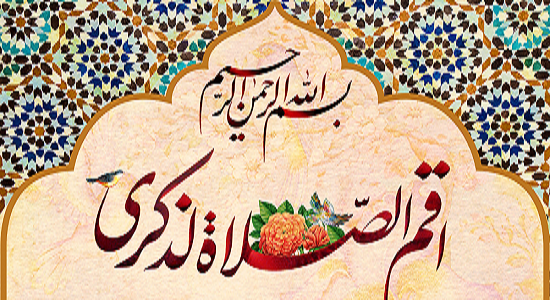 بسم الله الرحمن الرحیم
اقم الصّلاة لذکری